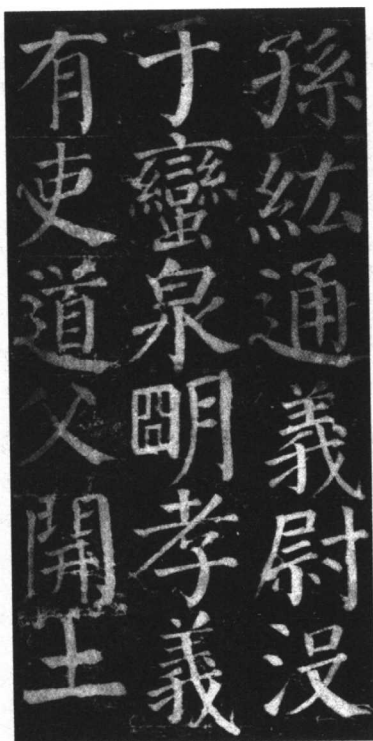 孫紘通義尉没
于蠻泉明孝義
有吏道父開土